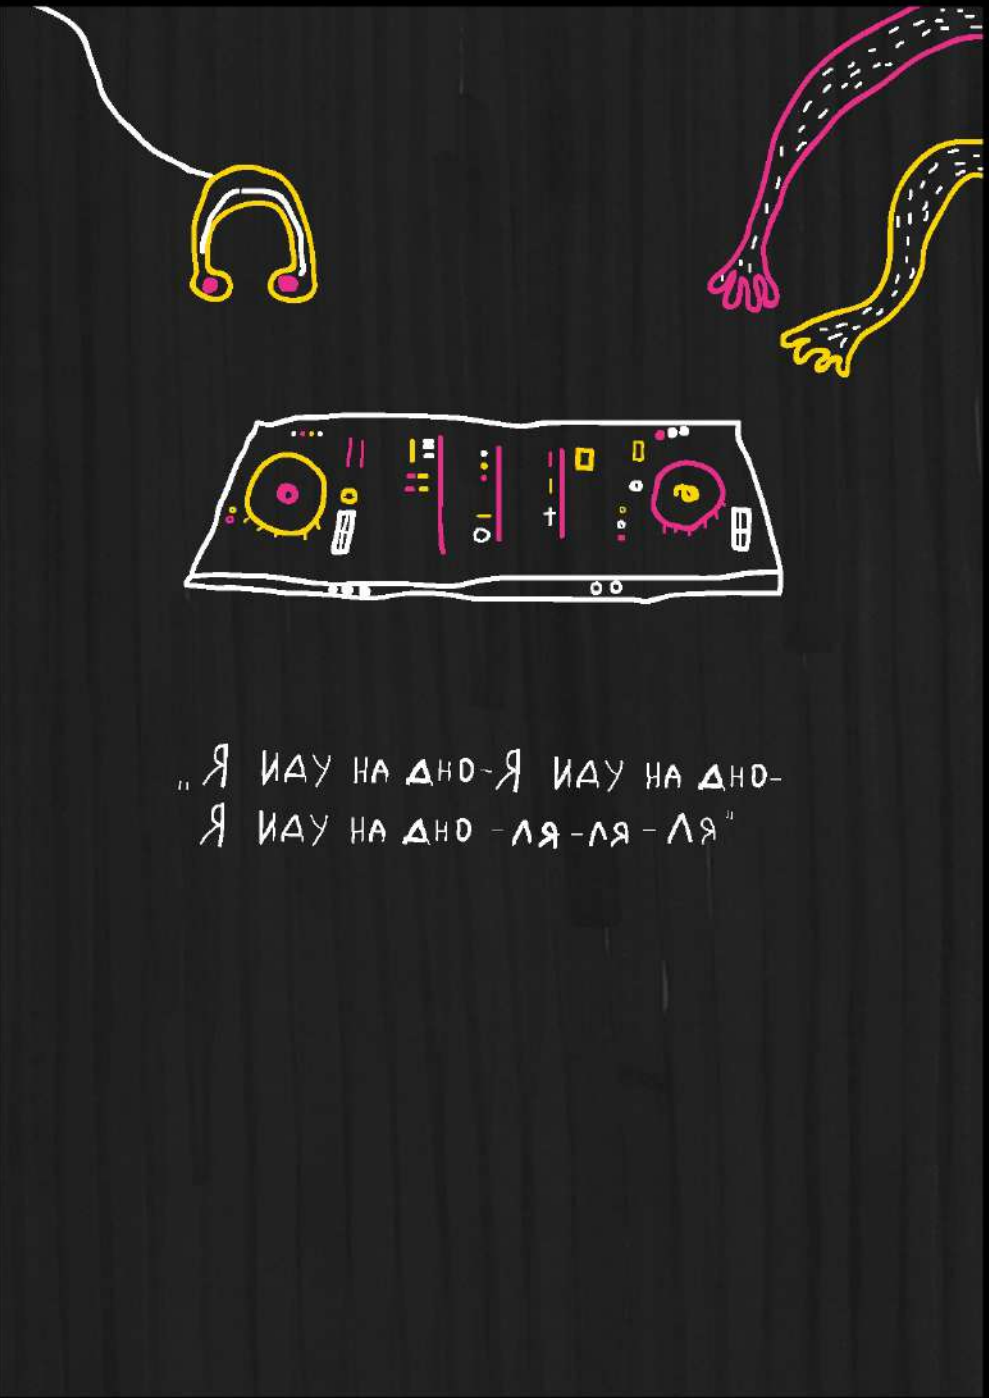 „Я ИДУ НА ДНО-Я ИДУ НА ДНО-
Я ИДУ НА ДНО -ЛЯ-ЛЯ-ЛЯ"